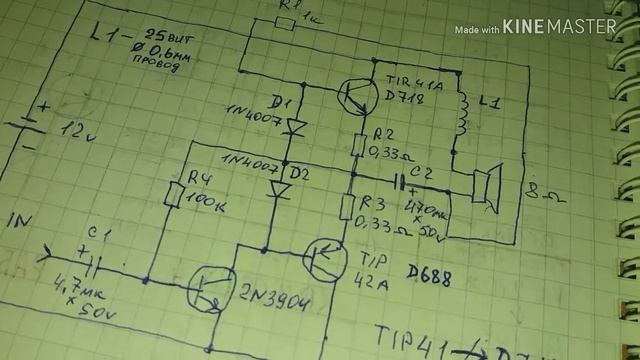 Made with KINEMASTER
R1
1к
L1 - 25ВИТ
Ø 0,6мм
ПРОВОД
TIP41A
D718
D1
1N4007
L1
+
12v
-
R2
0,33Ω
1N4007
D2
C2
8Ω
R4
100K
+
470мк
x
50v
R3
0,33Ω
IN
C1
+
4,7мк
x
50v
TIP
42A
D688
2N3904
TIP41